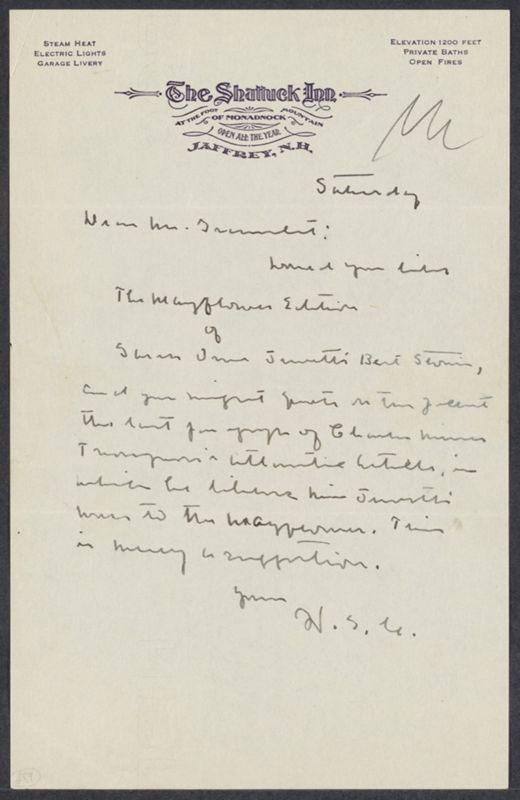 STEAM HEAT
ELECTRIC LIGHTS
GARAGE LIVERY
ELEVATION 1200 FEET
PRIVATE BATHS
OPEN FIRES
The Shattuck Inn
AT THE FOOT OF MONADNOCK MOUNTAIN
OPEN ALL THE YEAR
JAFFREY, N.H.
Saturday
Dear Mr. Greenslet:
Would you like
The Mayflower Edition
of
Sarah Orne Jewett's Best Stories,
and you might quote on the jacket
the last paragraph of Charles Miner
Thompson's Atlantic article, in
which he likens Miss Jewett's
work to the mayflower. This
is merely a suggestion.
Yours